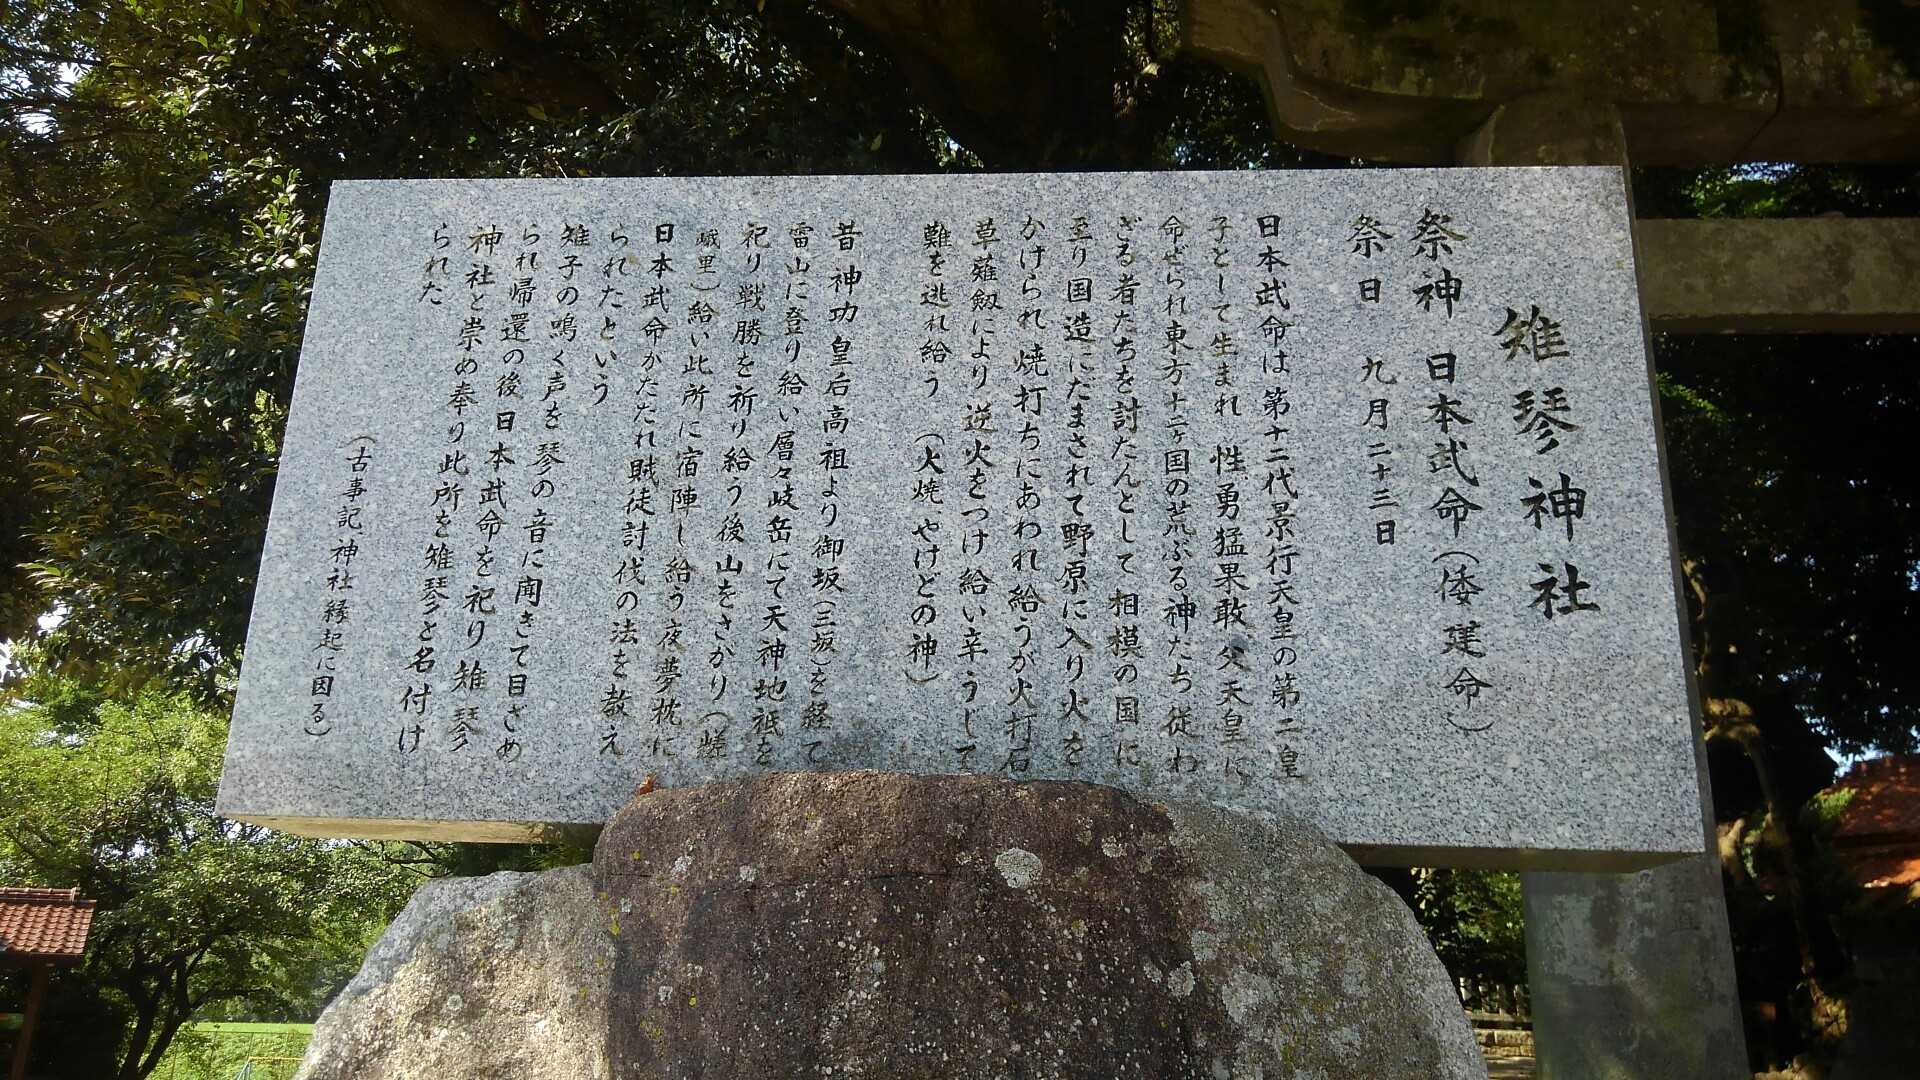 雉琴神社
祭神 日本武命(倭建命)
祭日 九月二十三日
日本武命は第十二代景行天皇の第二皇
子として生まれ 性勇猛果敢 父天皇に
命ぜられ東方十二ヶ国の荒ぶる神たち従わ
ざる者たちを討たんとして 相模の国に
至り国造にだまされて野原に入り火を
かけられ焼打ちにあわれ給うが火打石
草薙剱により逆火をつけ給い辛うじて
難を逃れ給う (火焼 やけどの神)
昔神功皇后高祖より御坂(三坂)を経て
雷山に登り給い層々岐岳にて天神地祗を
祀り戦勝を祈り給う後山をさがり(蹉
峨里)給い此所に宿陣し給う夜夢枕に
日本武命がたたれ賊徒討伐の法を教え
られたという
雉子の鳴く声を 琴の音に聞きて目ざめ
られ帰還の後日本武命を祀り 雉琴
神社と崇め奉り此所を雉琴と名付け
られた
(古事記 神社縁起に因る)